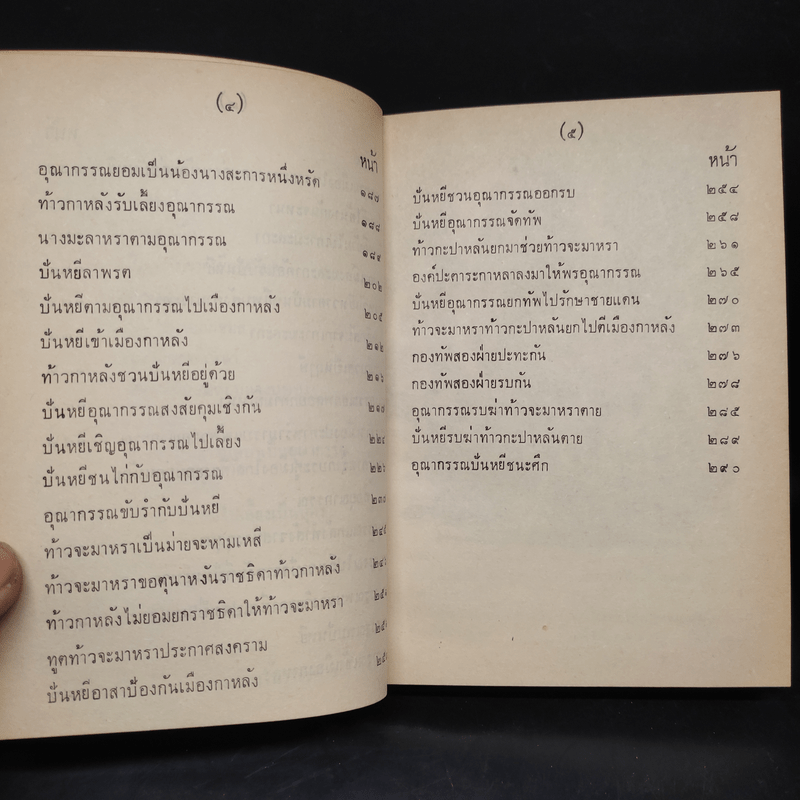 (๔)
หน้า
อุณากรรณยอมเป็นน้องนางสะการหนึ่งหรัด ๑๘๗
ท้าวกาหลังรับเลี้ยงอุณากรรณ ๑๘๘
นางมะลาหราตามอุณากรรณ ๑๘๙
ปั้นหยีลาพรต ๒๐๒
ปั้นหยีตามอุณากรรณไปเมืองกาหลัง ๒๐๕
ปั้นหยีเข้าเมืองกาหลัง ๒๑๒
ท้าวกาหลังชวนปั้นหยีอยู่ด้วย ๒๑๖
ปั้นหยีอุณากรรณสงสัยคุมเชิงกัน ๒๑๗
ปั้นหยีเชิญอุณากรรณไปเลี้ยง ๒๒๔
ปั้นหยีชนไก่กับอุณากรรณ ๒๒๖
อุณากรรณขับรำกับปั้นหยี ๒๓๐
ท้าวจะมาหราเป็นม่ายจะหามเหสี
ท้าวจะมาหราขอตุนาหงันราชธิดาท้าวกาหลัง
ท้าวกาหลังไม่ยอมยกราชธิดาให้ท้าวจะมาหรา
ทูตท้าวจะมาหราประกาศสงคราม
ปั้นหยีอาสาป้องกันเมืองกาหลัง
(๕)
หน้า
ปั้นหยีชวนอุณากรรณออกรบ ๒๕๔
ปั้นหยีอุณากรรณจัดทัพ ๒๕๘
ท้าวกะปาหลันยกมาช่วยท้าวจะมาหรา ๒๖๑
องค์ปะตาระกาหลาลงมาให้พรอุณากรรณ ๒๖๕
ปั้นหยีอุณากรรณยกทัพไปรักษาชายแดน ๒๗๐
ท้าวจะมาหราท้าวกะปาหลันยกไปตีเมืองกาหลัง ๒๗๓
กองทัพสองฝ่ายปะทะกัน ๒๗๖
กองทัพสองฝ่ายรบกัน ๒๗๘
อุณากรรณรบฆ่าท้าวจะมาหราตาย ๒๘๕
ปั้นหยีรบฆ่าท้าวกะปาหลันตาย ๒๘๙
อุณากรรณปั้นหยีชนะศึก ๒๙๑